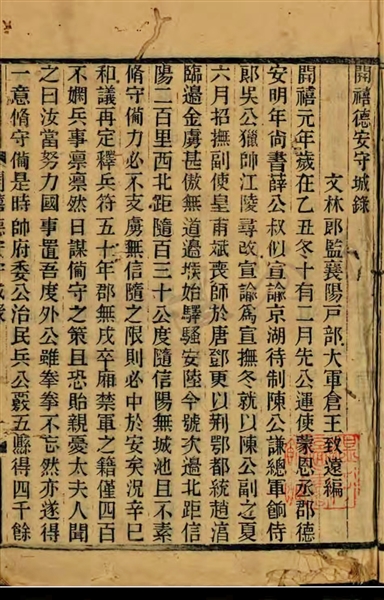 開禧德安守城錄
文林郎監襄陽戸部大軍倉王致遠編
開禧元年歲在乙丑冬十有二月先公運使蒙恩丞郡德
安明年尚書薛公叔似宣諭京湖待制陳公謙總軍餉侍
郎吳公獵帥江陵尋改宣諭爲宣撫冬就以陳公副之夏
六月招撫副使皇甫斌喪師於唐鄧更以荆鄂都統趙淳
臨邊金虜甚傲無道邊堠始驛騷安陸今號次邊北距信
陽二百里西北距隨百三十公度隨信陽無城池且不素
脩守僃力必不支虜無信隨之限則必中於安矣況辛巳
和議再定釋兵符五十年郡無戌卒厢禁軍之籍僅四百
不嫻兵事禀禀然日謀僃守之策且恐貽親憂太夫人聞
之曰汝當努力國事置吾度外公雖拳拳不忘然亦遂得
一意脩守僃是時帥府委公治民兵公覈五縣得四千餘
開禧德安守城錄